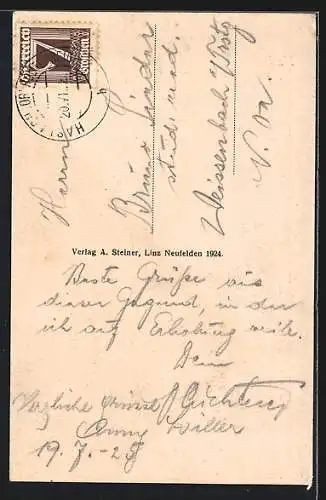 7
Österreich
Groschen
HASLACH
20.VII.
b
Herrn
Bruno
stud. med.
Weissenbach a/Trstg
N. Oe.
Verlag A. Steiner, Linz Neufelden 1924.
Beste Grüße aus
dieser Gegend, in der
ich auf Erholung weile.
Dein
Herzliche Grüsse
Anny
19.7.-28